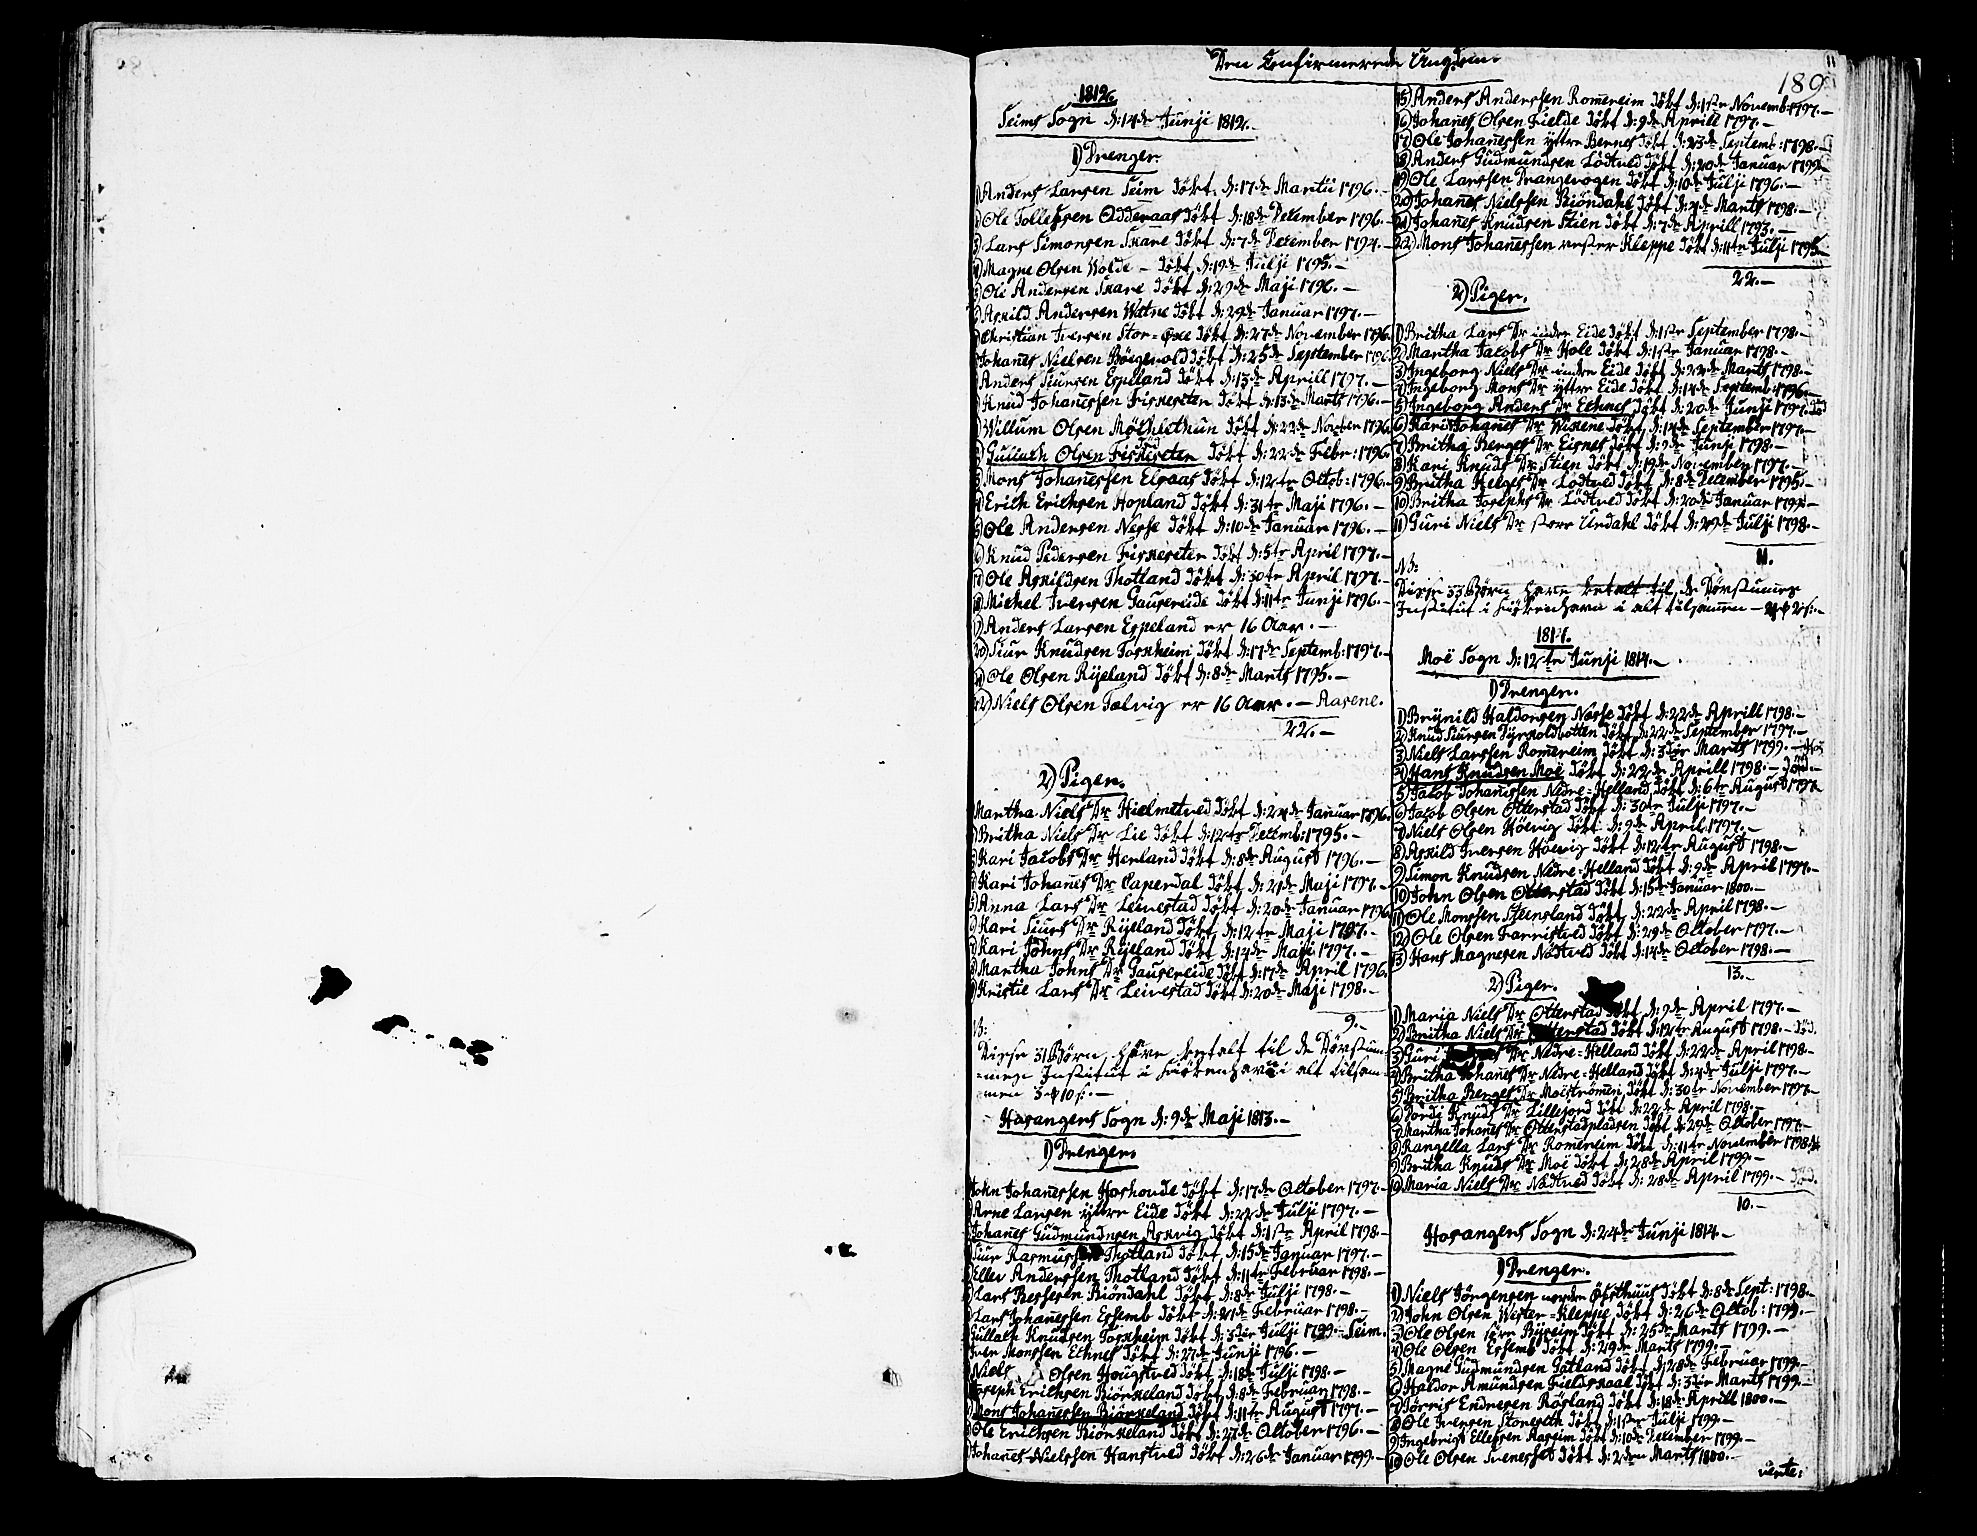 Den Confirmerede Ungdom.
189
1812.
Seims Sogn d: 14de Junji 1812.
1) Drenger.
1) Anders Larsen Seim døbt d: 17de Martii 1796.
2) Ole Tollefsen Odderaas døbt d: 18de December 1796.
3) Lars Simonsen Skare døbt d: 7de December 1794.
4) Magne Olsen Wolde døbt d: 19de Julji 1795.
5) Ole Andersen Skare døbt d: 29de Maji 1796.
6) Askild Andersen Watne døbt d: 29de Januar 1797.
Christian Iversen Stor-Øxe døbt d: 27de November 1796.
Johanes Nielsen Bøgevold døbt d: 25de September 1796.
Anders Siursen Espeland døbt d: 13de Aprill 1797.
Knud Johanessen Fiskeseter døbt d: 13de Marts 1796.
Willum Olsen døbt d: 22de November 1796
død
Gulleich Olsen Fiskeseter døbt d: 22de Febr: 1796
Mons Johanessen Elsaas døbt d: 12te Octob: 1796.
Erich Erichsen Hopland døbt d: 31te Maji 1796.
Ole Andersen Nesse døbt d: 10de Januar 1796.
Knud Pedersen Fiskeseter døbt d: 5te April 1797.
Ole Askildsen Thotland døbt d: 30te April 1797.
Michel Iversen Gausereide døbt d: 11te Junji 1796.
Anders Larsen Espeland er 16 Aar.
20) Siur Knudsen Toskheim døbt d: 17de Septemb: 1797.
Ole Olsen Rijeland døbt d: 8de Marts 1795.
22) Niels Olsen Talvig er 16 Aar. Aasene.
22.
2) Piger.
Martha Niels Dr Hielmtved døbt d: 24de Januar 1796.
Britha Niels Dr Lie døbt d: 12te Decemb: 1795.
Kari Jacobs Dr Henland døbt d: 8de August 1796.
Kari Johanes Dr Eaperdal døbt d: 21de Maji 1797.
Anna Lars Dr Leivestad døbt d: 20de Januar 1796
Kari Siurs Dr Rijeland døbt d: 12te Maji 1797.
Kari Johns Dr Rijeland døbt d: 14de Maji 1797.
Martha Johns Dr Gausereide døbt d: 17de April 1796.
Kristie Lars Dr Leivestad døbt d: 20de Maji 1798.
9.
NB:
Disse 31 Børn have betalt til de Døvstum-
mes Institut i Kiøbenhavn i alt tilsam-
men
Hosangers Sogn d: 9de Maji 1813.
1) Drenger.
John Johanessen Hoshovde døbt d: 17de October 1797.
Arne Larsen yttre Eide døbt d: 22de Julji 1797.
Johanes Gudmundsen Askvig døbt d: 1ste April 1798.
Siur Rasmussen Thotland døbt d: 15de Januar 1797.
Eller Anderssen Thotland døbt d: 11te Februar 1798.
Lars Bessesen Biøndahl døbt d: 8de Julji 1798.
Lars Johanessen Essemb døbt d: 21de Februar 1798.
Gullak Knudsen Toskheim døbt d: 3die Julji 1799. Seim.
Iver Monssen Echnes døbt d: 27de Junji 1796.
Niels Olsen Hougstved døbt d: 18de Julji 1798.
Joseph Erichsen Biørkeland døbt d: 8de Februar 1798.
Mons Johanessen Biørkeland døbt d: 11te August 1797.
Ole Erichsen Biørkeland døbt d: 27de October 1796.
Johanes Nielssen Hanstved døbt d: 26de Januar 1799.
15) Anders Anderssen Romereim døbt d: 1ste Novemb: 1797.
16) Johanes Olsen Fielde døbt d: 9de Aprill 1797.
17) Ole Johanessen yttre Bernes døbt d: 23de Septemb: 1798.
18) Anders Gudmundsen Lødtved døbt d: 20de Januar 1799.
19) Ole Larssen Drangevogen døbt d: 10de Julji 1796.
20) Johanes Nielssen Biøndahl døbt d: 4de Marts 1798.
21) Johanes Knudsen Stien døbt d: 7de Aprill 1793.
22) Mons Johanessen vester Kleppe døbt d: 11te Julji 1795.
22.
2) Piger.
1) Britha Lars Dr indre Eide døbt d: 1ste September 1798.
2) Martha Jacobs Dr Hole døbt d: 1ste Januar 1798.
3) Ingeborg Niels Dr indre Eide døbt d: 22de Marts 1798.
4) Ingeborg Mons Dr yttre Eide døbt d: 14de Septemb: 1796.
5) Ingeborg Anders Dr Echnes døbt d: 20de Junji 1797. død
6) Kari Johanes Dr Wikene døbt d: 14de September 1797.
7) Britha Berges Dr Eisnes døbt d: 9de Junji 1798.
8) Kari Knuds Dr Stien døbt d: 19de November 1797.
9) Britha Helges Dr Lødtved døbt d: 8de December 1795.
10) Britha Josephs Dr Lødtved døbt d: 20de Januar 1799.
11) Guri Niels Dr store Urdahl døbt d: 29de Julji 1798.
11.
NB:
Disse 33 Børn have betalt til de Døvstummes
Institut i Kiøbenhavn i alt tilsammen
1814.
Moë Sogn d: 12te Junji 1814.
1) Drenger.
1) Brynild Haldorsen Nesse døbt d: 22de Aprill 1798.
2) Knud Siursen døbt d: 22de September 1797.
3) Niels Larssen Romereim døbt d: 3die Marts 1799.
4) Hans Knudsen Moë døbt d: 22de Aprill 1798. død.
5) Jacob Johanessen Nedre-Helland døbt d: 6te August 1797.
6) Jacob Olsen Otterstad døbt d: 30te Julji 1797.
7) Niels Olsen Høevig døbt d: 9de April 1797.
8) Askild Iversen Høevig døbt d: 12te August 1798.
9) Simon Knudsen Nedre-Helland døbt d: 9de April 1797.
10) John Olsen Otterstad døbt d: 15de Januar 1800.
11) Ole Monssen Steensland døbt d: 22de April 1798.
12) Ole Olsen Farestved døbt d: 29de October 1797.
13) Hans Magnesen Nødtved døbt d: 14de October 1798.
13.
2) Piger.
1) Maria Niels Dr Otterstad døbt d: 9de April 1797.
2) Britha Niels Dr Otterstad døbt d: 12te August 1798. død.
3) Guri Dr Nedre-Helland døbt d: 22de April 1798.
4) Britha Johanes Dr Nedre-Helland døbt d: 4de Julji 1797.
5) Britha Berges Dr Moëstrømmen døbt d: 30te November 1797.
6) Dordi Knuds Dr Lillefiord døbt d: 22de April 1798.
7) Martha Johanes Dr Otterstadpladsen døbt d: 29de October 1797.
8) Rangella Lars Dr Romereim døbt d: 11te November 1798.
9) Britha Knuds Dr Moë døbt d: 28de April 1799.
10) Maria Niels Dr Nødtved døbt d: 28de April 1799. død.
10.
Hosangers Sogn d: 24de Junji 1814.
1) Drenger.
1) Niels Jørgensen nordre Øvsthuus døbt d: 8de Sept: 1798.
2) John Olsen Wester-Kleppe døbt d: 26de Octob: 1799.
3) Ole Olsen søre Bysheim døbt d: 25de Marts 1799.
4) Ole Olsen Essemb døbt d: 29de Marts 1799.
5) Magne Gudmundsen Jatland døbt d: 28de Februar 1799.
6) Haldor Amundsen Fieldskaal døbt d: 3die Marts 1799.
7) Tørris Endresen Røsland døbt d: 18de Aprill 1800.
8) Ole Iversen Stoneseth døbt d: 1ste Julji 1799.
9) Ingebrigt Ellefsen Aasheim døbt d: 10de December 1799.
10) Ole Olsen Tvenesset døbt d: 2den Marts 1800.
verte: